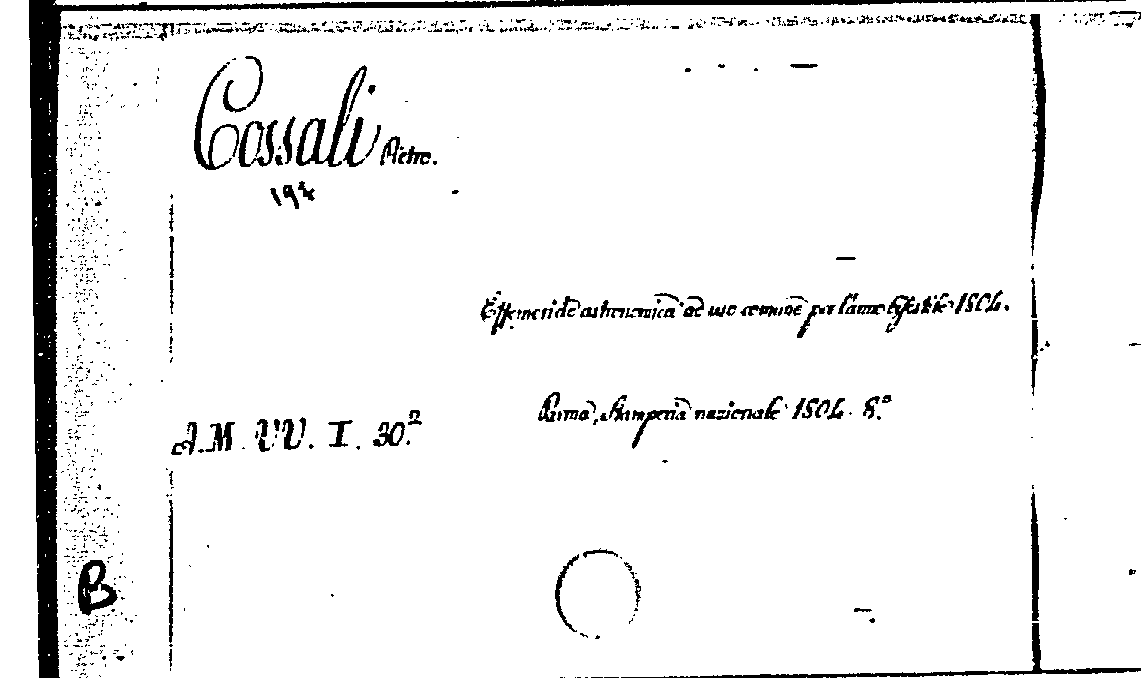 Cossali Pietro.
194
Effemeride astronomica ad uso comune per l'anno bisestile 1804.
Parma, Stamperia nazionale 1804. 8.°
A.M. VV. I. 30.2
B